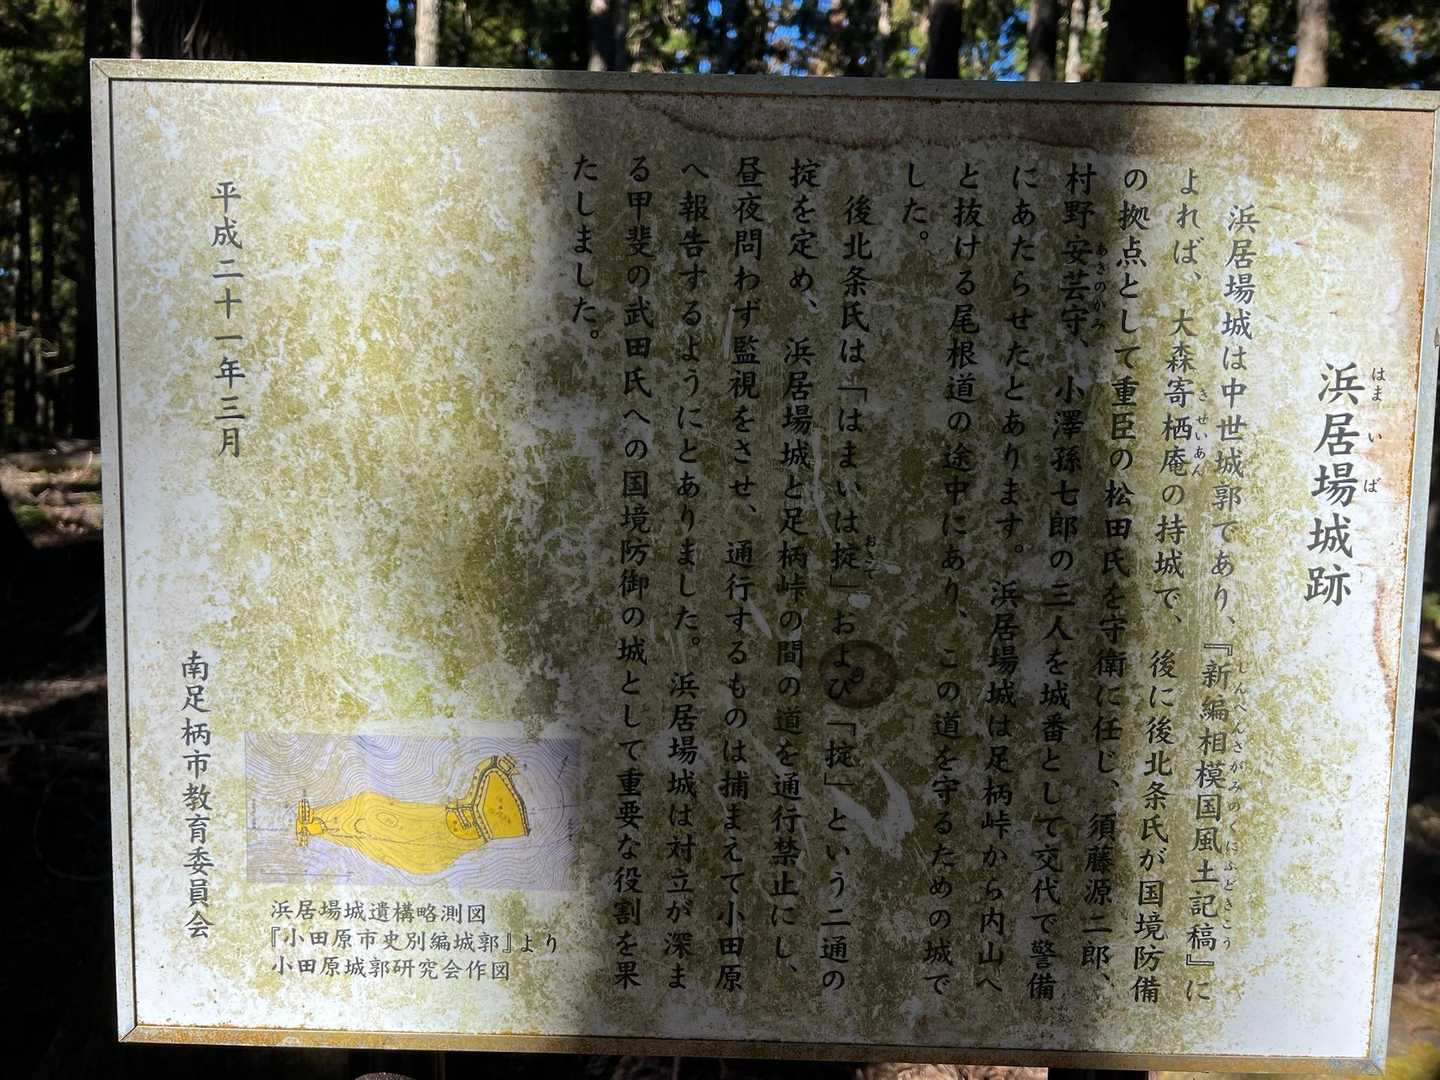 浜居場城跡
はまいば
浜居場城は中世城郭であり、『新編相模国風土記稿』に
しんぺんさがみのくにふどきこう
よれば、大森寄栖庵の持城で、後に後北条氏が国境防備
きせいあん
の拠点として重臣の松田氏を守衛に任じ、須藤源二郎、
村野安芸守、小澤孫七郎の三人を城番として交代で警備
あきのかみ
にあたらせたとあります。浜居場城は足柄峠から内山へ
と抜ける尾根道の途中にあり、この道を守るための城で
した。
後北条氏は「はまいは掟」および「掟」という二通の
おきて
掟を定め、浜居場城と足柄峠の間の道を通行禁止にし、
昼夜問わず監視をさせ、通行するものは捕まえて小田原
へ報告するようにとありました。浜居場城は対立が深ま
る甲斐の武田氏への国境防御の城として重要な役割を果
たしました。
平成二十一年三月
南足柄市教育委員会
浜居場城遺構略測図
『小田原市史別編城郭』より
小田原城郭研究会作図